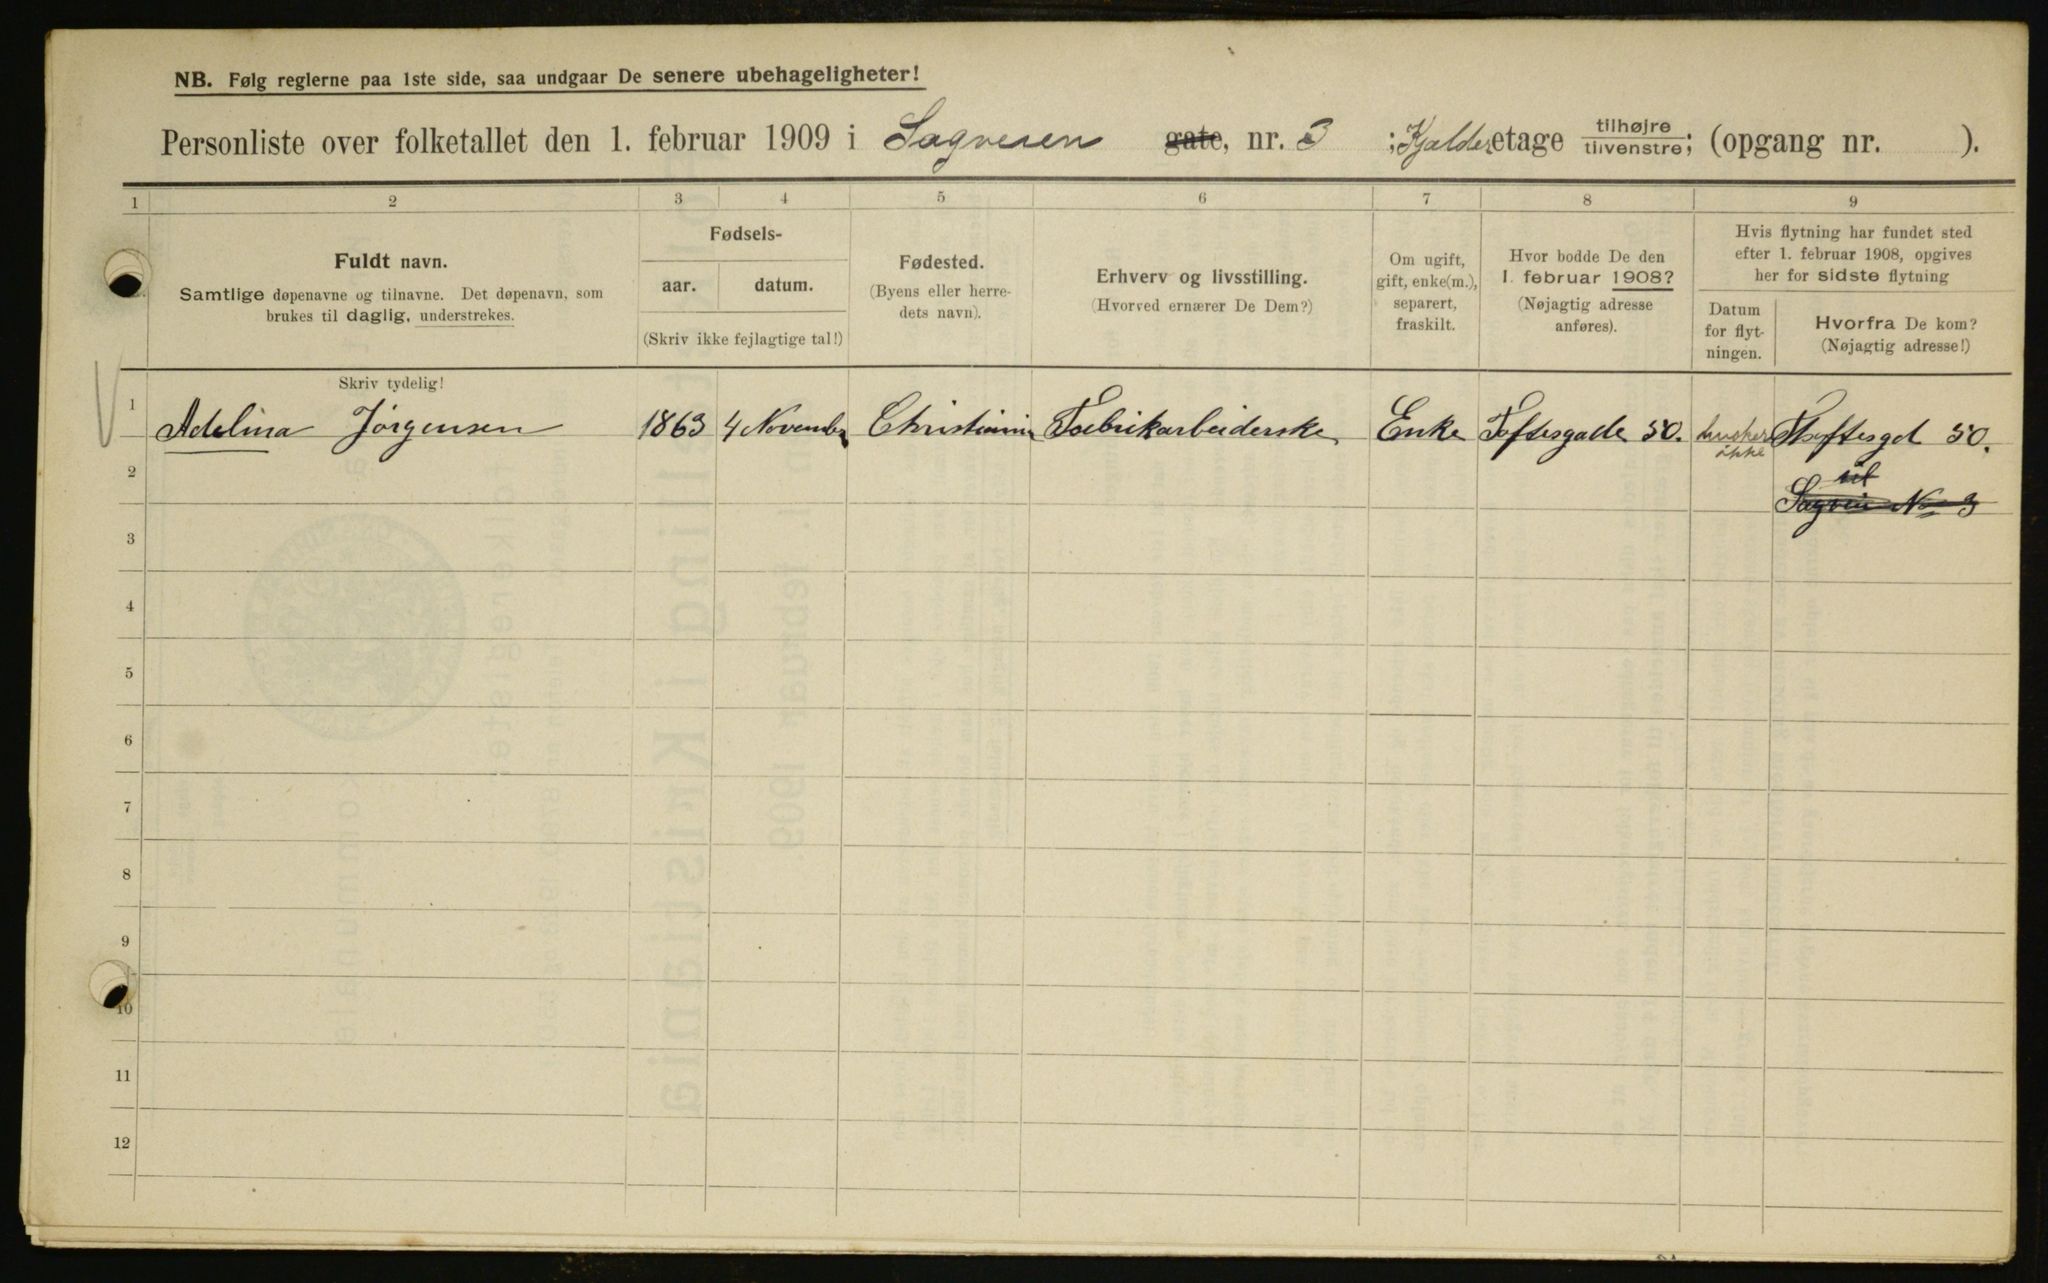 NB. Følg reglerne paa 1ste side, saa undgaar De senere ubehageligheter!
Personliste over folketallet den 1. februar 1909 i Sagveien gate, nr. 3 ; Kjælder etage tilhøjre tilvenstre; (opgang nr. ).
1 2 3 4 5 6 7 8 9
Fuldt navn.
Samtlige døpenavne og tilnavne. Det døpenavn, som
brukes til daglig, understrekes.
Fødsels-
aar. datum.
(Skriv ikke fejlagtige tal!)
Fødested.
(Byens eller herre-
dets navn).
Erhverv og livsstilling.
(Hvorved ernærer De Dem?)
Om ugift,
gift, enke(m.),
separert,
fraskilt.
Hvor bodde De den
1. februar 1908?
(Nøjagtig adresse
anføres).
Hvis flytning har fundet sted
efter 1. februar 1908, opgives
her for sidste flytning
Datum
for flyt-
ningen.
Hvorfra De kom?
(Nøjagtig adresse!)
Skriv tydelig!
1 Adelina Jørgensen 1863 4 November Christiania Fabrikarbeiderske Enke Toftesgade 50. husker ikke Thoftesgd 50.
til
Sagvein No 3
2
3
4
5
6
7
8
9
10
11
12